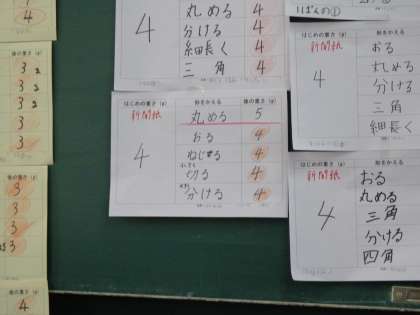 4
後の重さ(g)
3 2
3 2
3 2
3
3
後の重さ(g)
3
3
3
3
後の重さ(g)
4
4
丸める 4
分ける 4
細長く 4
三角 4
はじめの重さ(g) 形をかえる 後の重さ(g)
新聞紙
4
丸める 5
おる 4
ねじる 4
切る 4
分ける 4
1ぱんの①
はじめの重さ(g) 形をかえる
新聞紙
4
おる
丸める
分ける
三角
細長く
はじめの重さ(g) 形をかえる
新聞紙
4
おる
丸める
三角
分ける
四角